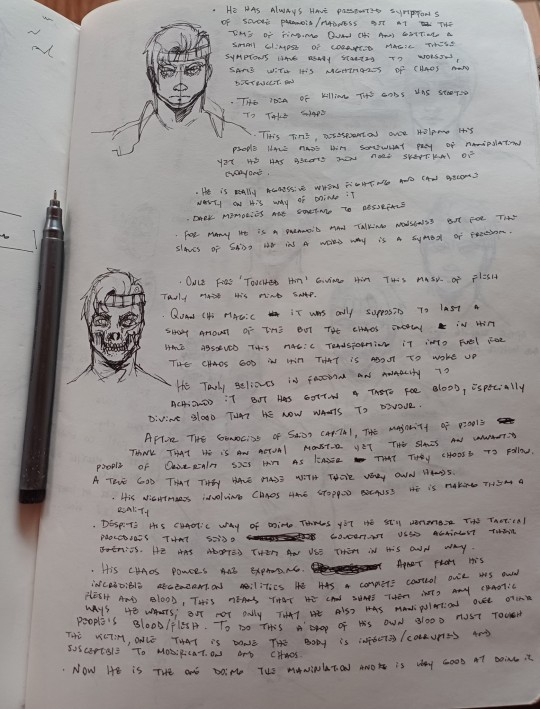 • HE HAS ALWAYS HAVE PRESENTED SYMPTONS
OF SEVERE PARANOID/MADNESS BUT AT THE
TIME OF FINDING QUAN CHI AND GETTING A
SMALL GLIMPSE OF CORRUPTED MAGIC THESE
SYMPTONS HAVE REALLY STARTED TO WORSEN,
SAME WITH HIS NIGHTMARES OF CHAOS AND
DESTRUCTION
• THE IDEA OF KILLING THE GODS HAS STARTED
TO TAKE SHAPE
THIS TIME, DESESPERATION OVER HELPING HIS
PEOPLE HAVE MADE HIM SOMEWHAT PREY OF MANIPULATION
YET HE HAS BECOME EVEN MORE SKEPTIKAL OF
EVERYONE.
• HE IS REALLY AGGRESSIVE WHEN FIGHTING AND CAN BECOME
NASTY ON HIS WAY OF DOING IT
• DARK MEMORIES ARE STARTING TO RESURFACE
• FOR MANY HE IS A PARANOID MAN TALKING NONSENSE BUT FOR THE
SLAVES OF SEIDO HE IN A WEIRD WAY IS A SYMBOL OF FREEDOM.
• ONCE FIRE 'TOUCHED HIM' GIVING HIM THIS MASK OF FLESH
TRULY MADE HIS MIND SNAP.
• QUAN CHI MAGIC IT WAS ONLY SUPPOSED TO LAST A
SHORT AMOUNT OF TIME BUT THE CHAOS ENERGY IN HIM
HAVE ABSORVED THIS MAGIC TRANSFORMING IT INTO FUEL FOR
THE CHAOS GOD IN HIM THAT IS ABOUT TO WAKE UP
HE TRULY BELIEVES IN FREEDOM AN ANARCHY TO
ACHIEVED IT BUT HAS GOTTEN A TASTE FOR BLOOD, ESPECIALLY
DIVINE BLOOD THAT HE NOW WANTS TO DEVOUR.
AFTER THE GENOCIDE OF SEIDO CAPITAL, THE MAJORITY OF PEOPLE
THINK THAT HE IS AN ACTUAL MONSTER YET THE SLAVES AN UNWANTED
PEOPLE OF ORDERREALM SEES HIM AS LEADER THAT THEY CHOOSE TO FOLLOW.
A TRUE GOD THAT THEY HAVE MADE WITH THEIR VERY OWN HANDS.
• HIS NIGHTMARES INVOLVING CHAOS HAVE STOPPED BECAUSE HE IS MAKING THEM A
REALITY
• DESPITE HIS CHAOTIC WAY OF DOING THINGS YET HE STILL REMEMBER THE TACTICAL
PROCEDURES THAT SEIDO GOVERMENT USED AGAINST THEIR
ENEMIES. HE HAS ADOPTED THEM AN USE THEM IN HIS OWN WAY.
• HIS CHAOS POWERS ARE EXPANDING. APART FROM HIS
INCREDIBLE REGENERATION ABILITIES HE HAS A COMPETE CONTROL OVER HIS OWN
FLESH AND BLOOD, THIS MEANS THAT HE CAN SHAPE THEM INTO ANY CHAOTIC
WAYS HE WANTS; BUT NOT ONLY THAT HE ALSO HAS MANIPULATION OVER OTHER
PEOPLE'S BLOOD/FLESH. TO DO THIS A DROP OF HIS OWN BLOOD MUST TOUCH
THE VICTIM, ONCE THAT IS DONE THE BODY IS INFECTED/CORRUPTED AND
SUSCEPTIBLE TO MODIFICATION AND CHAOS.
• NOW HE IS THE ONE DOING THE MANINLATION AND IS VERY GOOD AT DOING IT